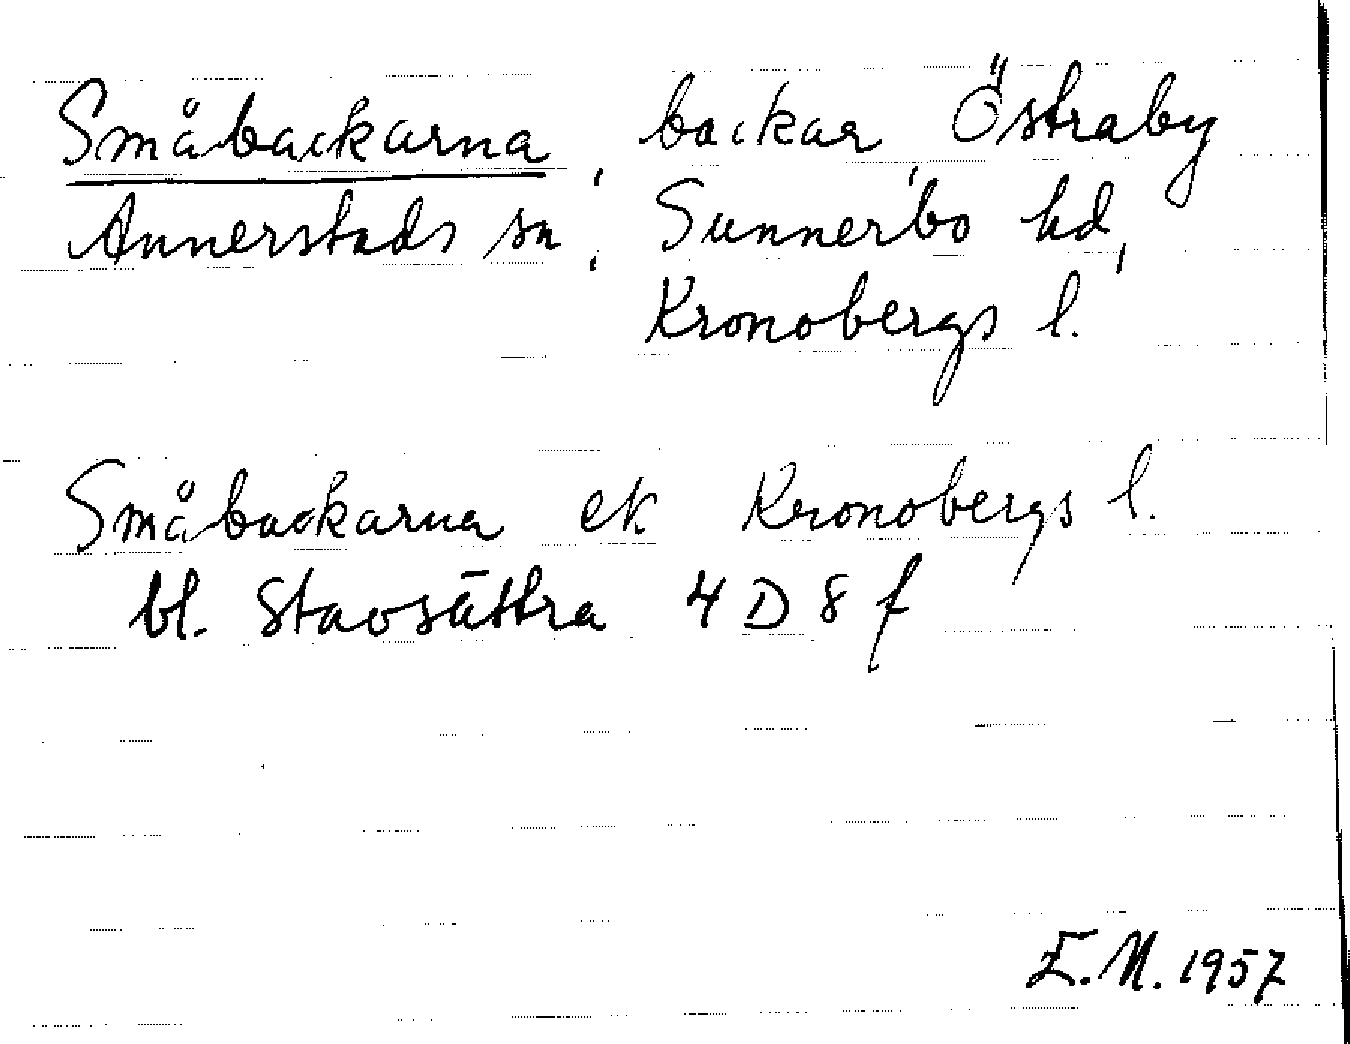 Småbackarna, backar, Östraby
Annerstads sn, Sunnerbo hd,
Kronobergs l.
Småbackarna ek Kronobergs l.
bl. Stavsättra 4 D 8 f
E.N. 1957